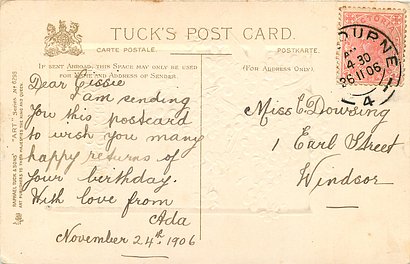 TUCK'S POST CARD.
CARTE POSTALE.
POSTKARTE.
IF SENT ABROAD, THIS SPACE MAY ONLY BE USED
FOR NAME AND ADDRESS OF SENDER.
(FOR ADDRESS ONLY.)
Dear Cissie
am sending
you this postcard
to wish you many
happy returns of
your birthday.
With love from
Ada
November 24th. 1906
Miss C. Dowsing
1 Earl Street
Windsor
VICTORIA
OURNE
4 30
26 11 06
4
RAPHAEL TUCK & SONS' "ART" SERIES
ART PUBLISHERS TO THEIR MAJESTIES THE KING AND QUEEN.